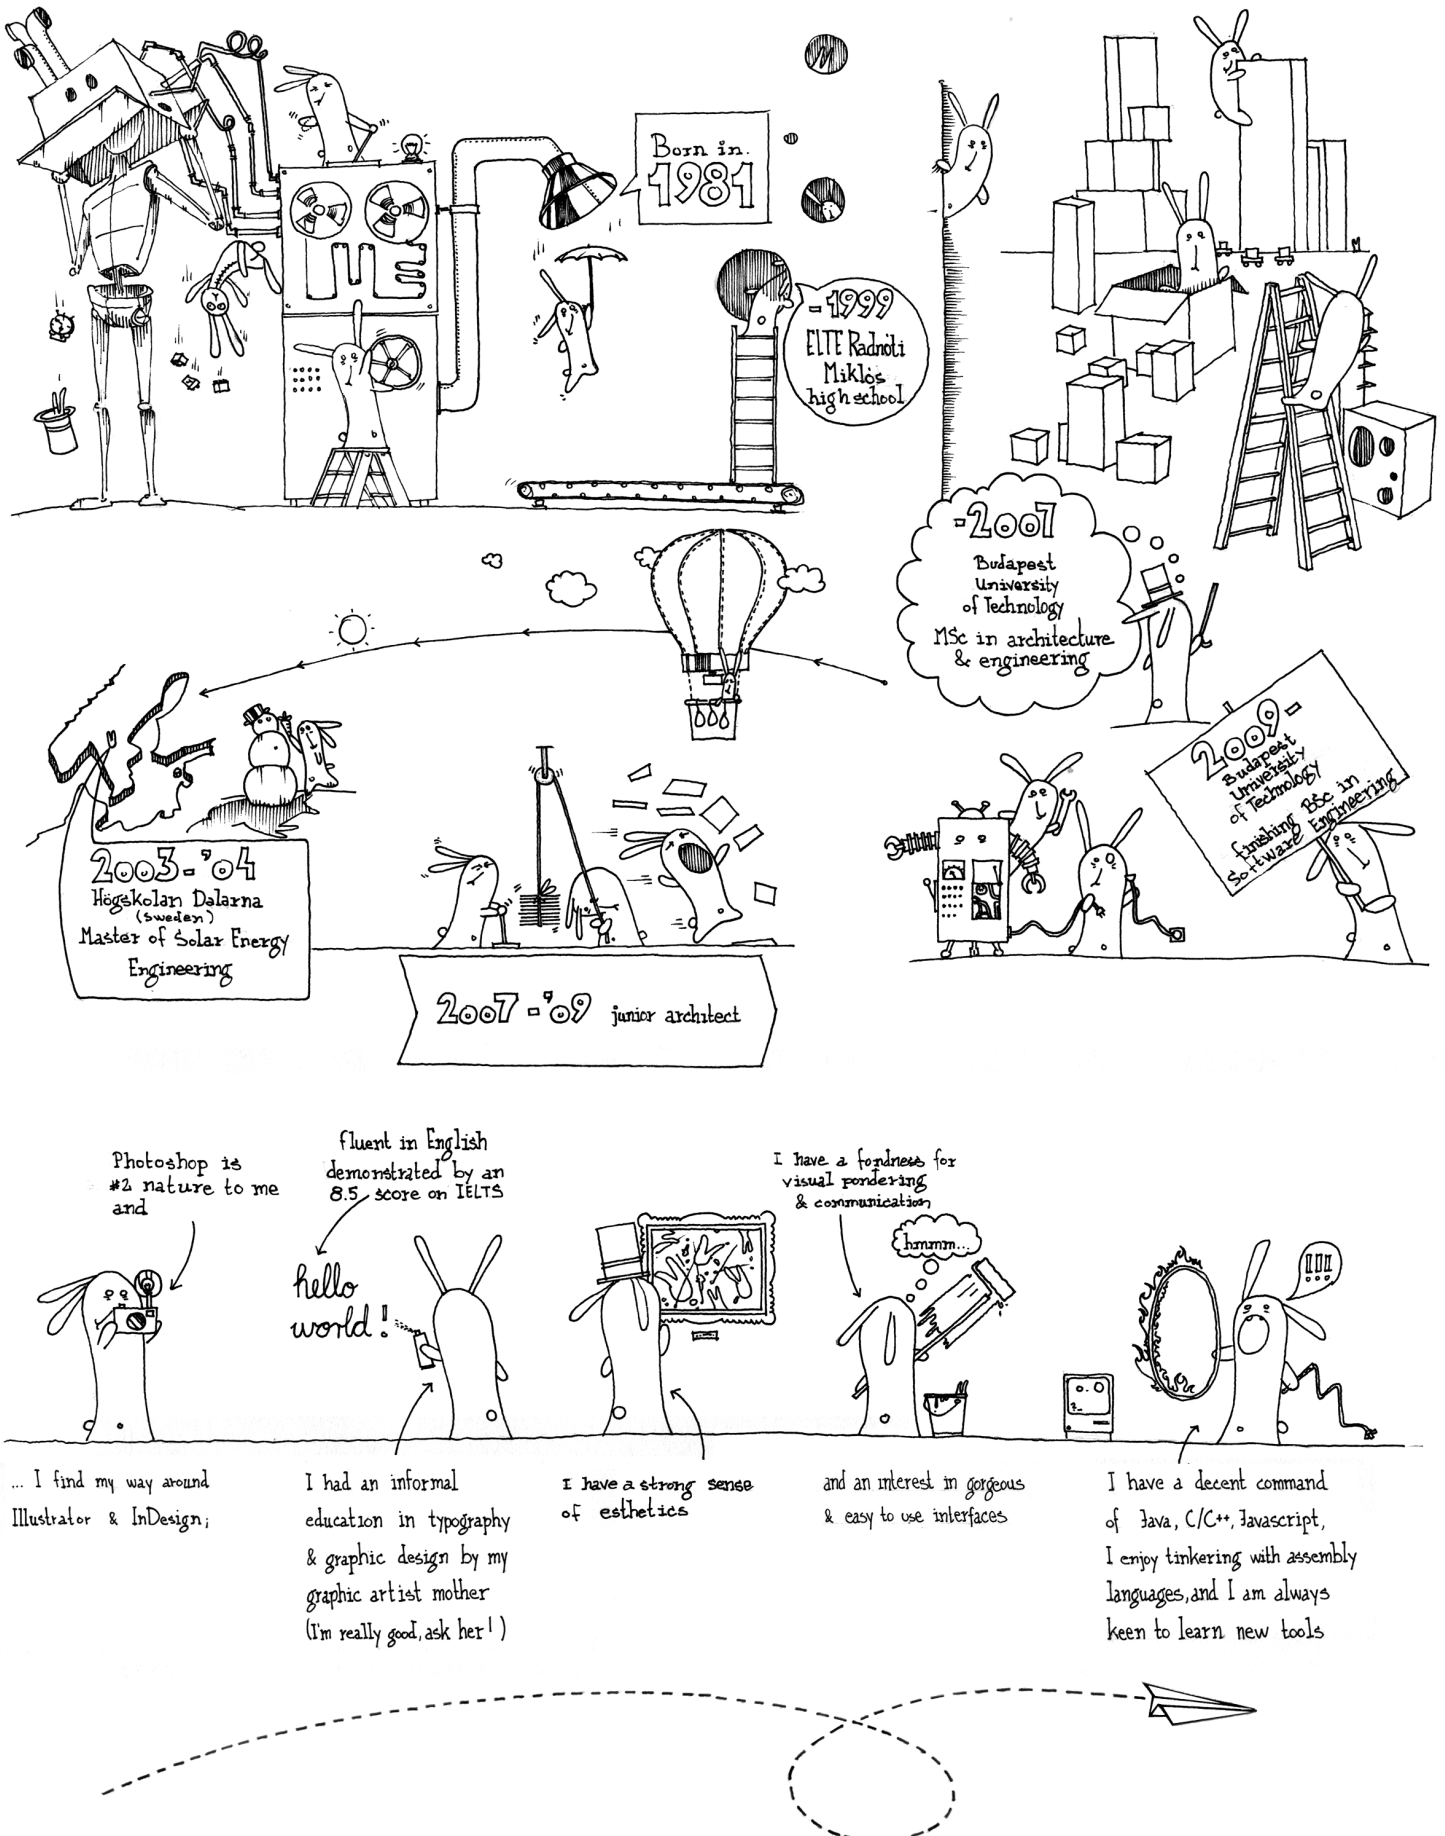 ME
Born in
1981
-1999
ELTE Radnóti
Miklós
high school
-2007
Budapest
University
of Technology
MSc in architecture
& engineering
2009-
Budapest
University
of Technology
finishing BSc in
Software Engineering
2003-'04
Högskolan Dalarna
(Sweden)
Master of Solar Energy
Engineering
2007-'09 junior architect
Photoshop is
#2 nature to me
and
fluent in English
demonstrated by an
8.5 score on IELTS
I have a fondness for
visual pondering
& communication
hmmm...
!!!
hello
world!
... I find my way around
Illustrator & InDesign;
I had an informal
education in typography
& graphic design by my
graphic artist mother
(I'm really good, ask her!)
I have a strong sense
of esthetics
and an interest in gorgeous
& easy to use interfaces
I have a decent command
of Java, C/C++, Javascript,
I enjoy tinkering with assembly
languages, and I am always
keen to learn new tools